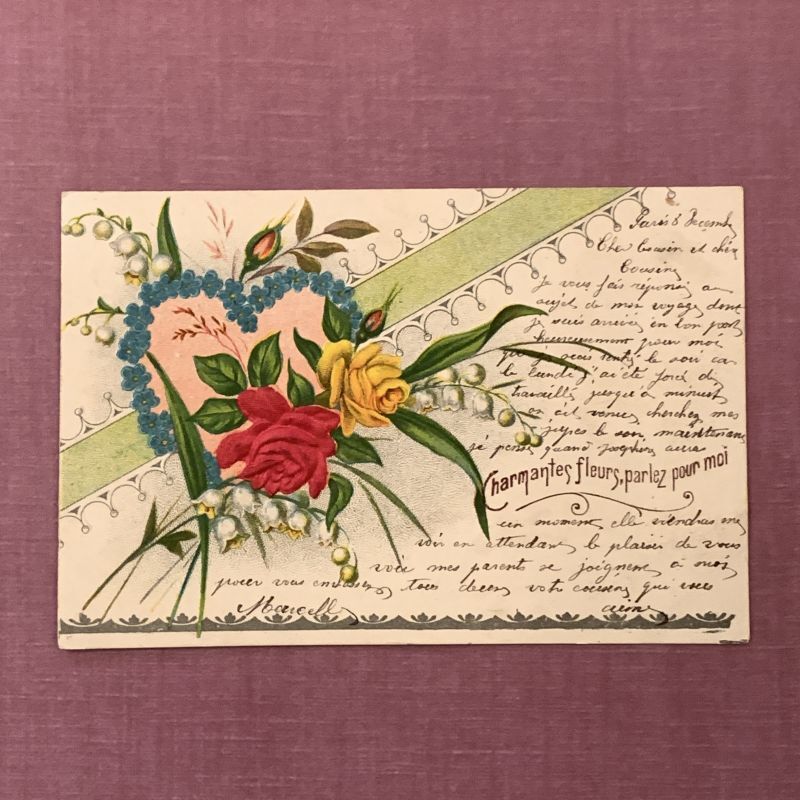 Paris 8 Decemb
Cher Cousin et chère
Cousine
Je vous fais réponse au
sujet de mon voyage dont
je suis arrivée en bon port
heureusement pour moi
que je suis rentré le soir car
le lundi j'ai été forcé de
travaillé jusqu'a minuit
on est venue cherchez mes
jupes le soir maintenant
je pense quand Josephine aura
Charmantes fleurs, parlez pour moi
un moment elle viendras me
voir en attendant le plaisir de vous
voir mes parents se joignent à moi
pour vous embrasser tous deux votre cousine qui vous
Marcelle aime